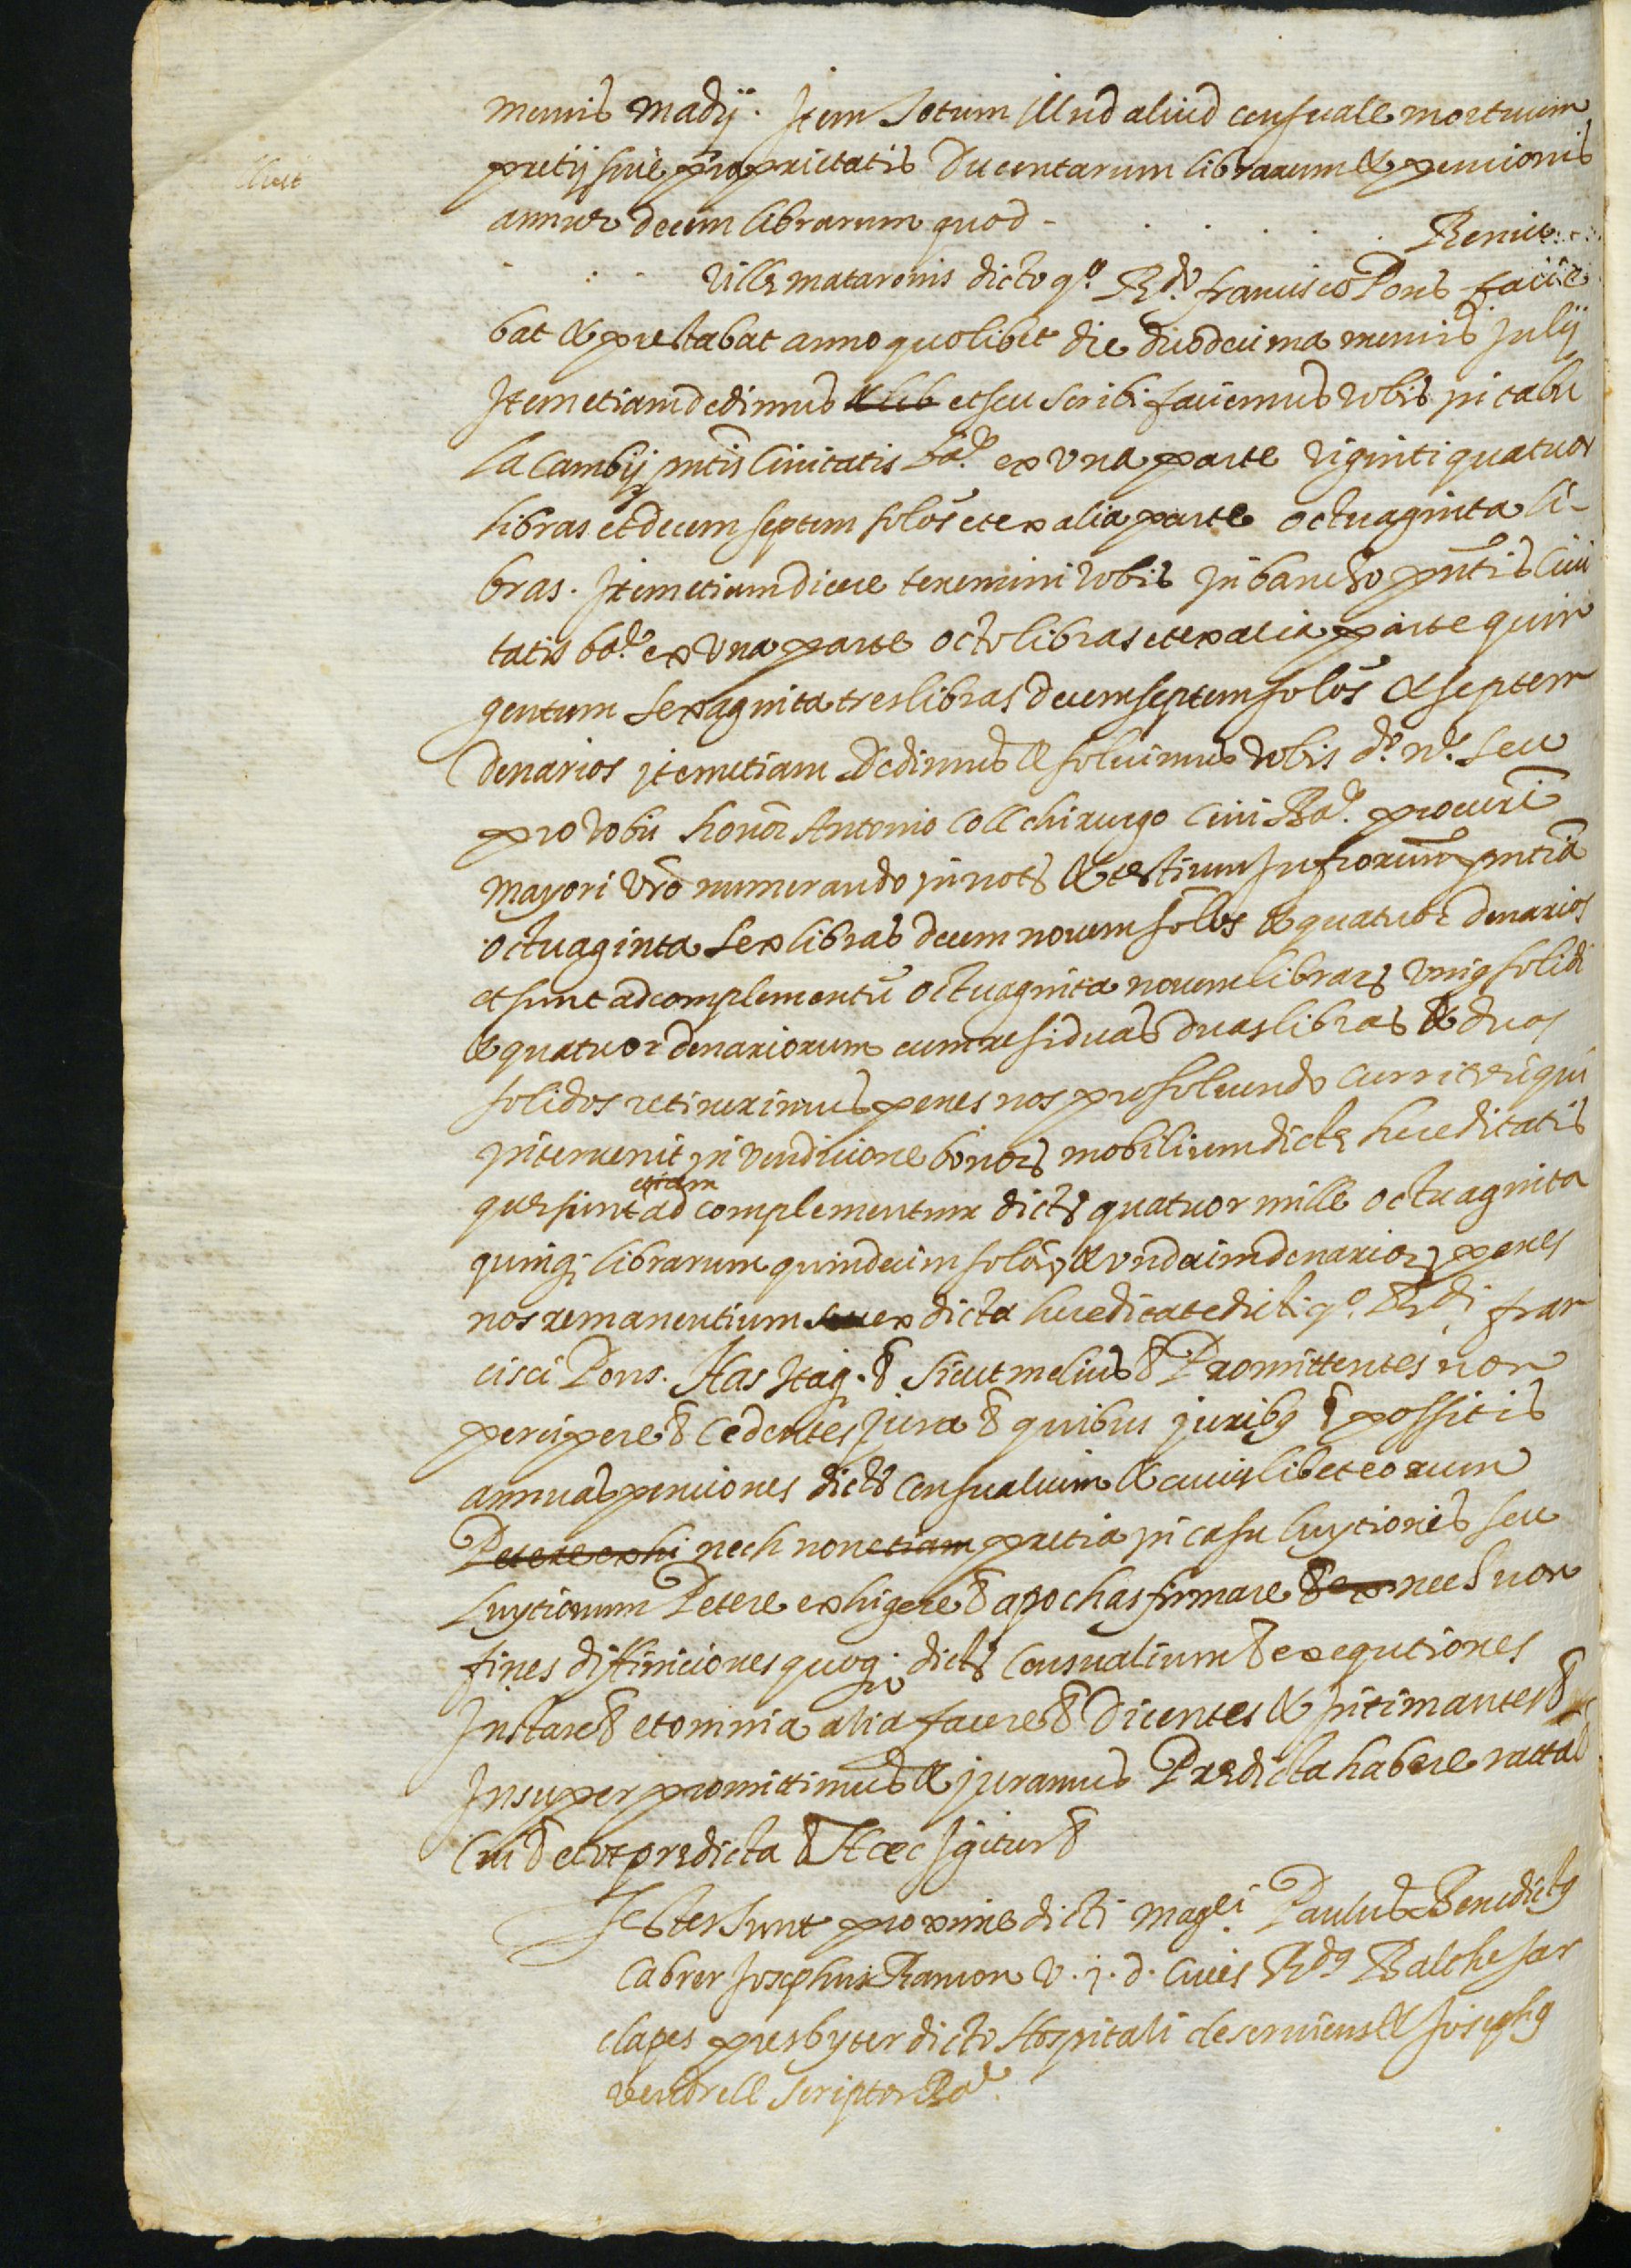 mensis madij. Item Totum illud aliud censuale mortuum
pretij sive proprietatis Ducentarum librarum & pensionis
annue decem librarum quod -
Ville mataronis dicto qº. Rdo. francisco Pons facie
bat & prestabat anno quolibet die duodecima mensis Julij
Item etiam dedimus & lib et seu scribi facimus vobis in tabu
la Cambij pntis Civitatis Ba. ex una parte viginti quatuor
libras et decem septem solos et ex alia parte octuaginta li-
bras. Item etiam dicere tenemini vobis in bancho pntis Civi
tatis ba. ex una parte octo libras et ex alia parte quin
gentum sexaginta tres libras decem septem solos & septem
denarios item etiam Dedimus & solvimus vobis do. no. seu
pro vobis honor Antonio Coll chirurgo Civi Ba. procuri
mayori vro numerando in nots & testium Infrorum pntia
octuaginta sex libras decem novem solos & quatuor denarios
et sunt ad complementu octuaginta novem librars unig solidi
& quatuor denariorum cum residuas duas libras & duos
solidos retinuerimus penes nos pro solvendo curritori qui
intervenit in vendicione bonors mobilium dicte hereditatis
que sunt etiam ad complementum dicts quatuor mille octuaginta
quinq; librarum quindecim solors & undecim denarior penes
nos remanentium seu ex dicta hereditate dicti qº. Rdi. fran
cisci Pons. Has Itaq. & sicut melius & Promittentes non
percipere & Cedentes jura & quibus juribg & possitis
annuas pensiones dicts Censualium & cuiuslibet eorum
Petere exhi nech non etiam pretia in casu luytionis seu
Luytionum Petere exhigere & apochas firmare & ex nech non
fines diffiniciones quoq; dicts Censualium & exequtiones
Instare & et omnia alia facere & Dicentes & Intimantes &
Insuper promittimus & juramus Predicta habere ratta &
Cui & et ut predicta & Hec Igitur &
Testes sunt proxime dicti magci. Paulus Benedictg
Cabrer Josephus Ramon U. j. d. Cives Rdg Balthesar
clapes presbyter dicto Hospitali deserviens & Josephg
vendrell scriptor Ba.